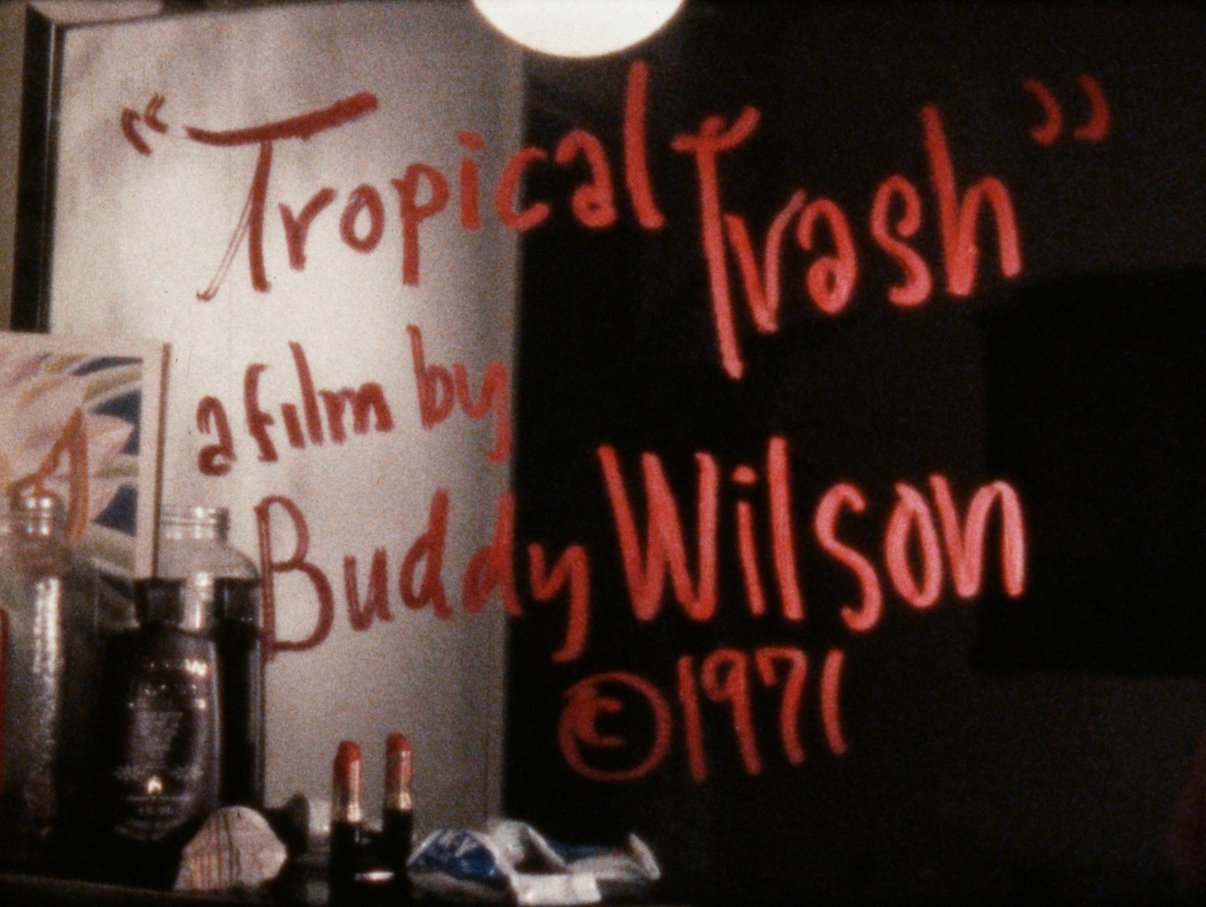 "Tropical Trash"
a film by
Buddy Wilson
© 1971